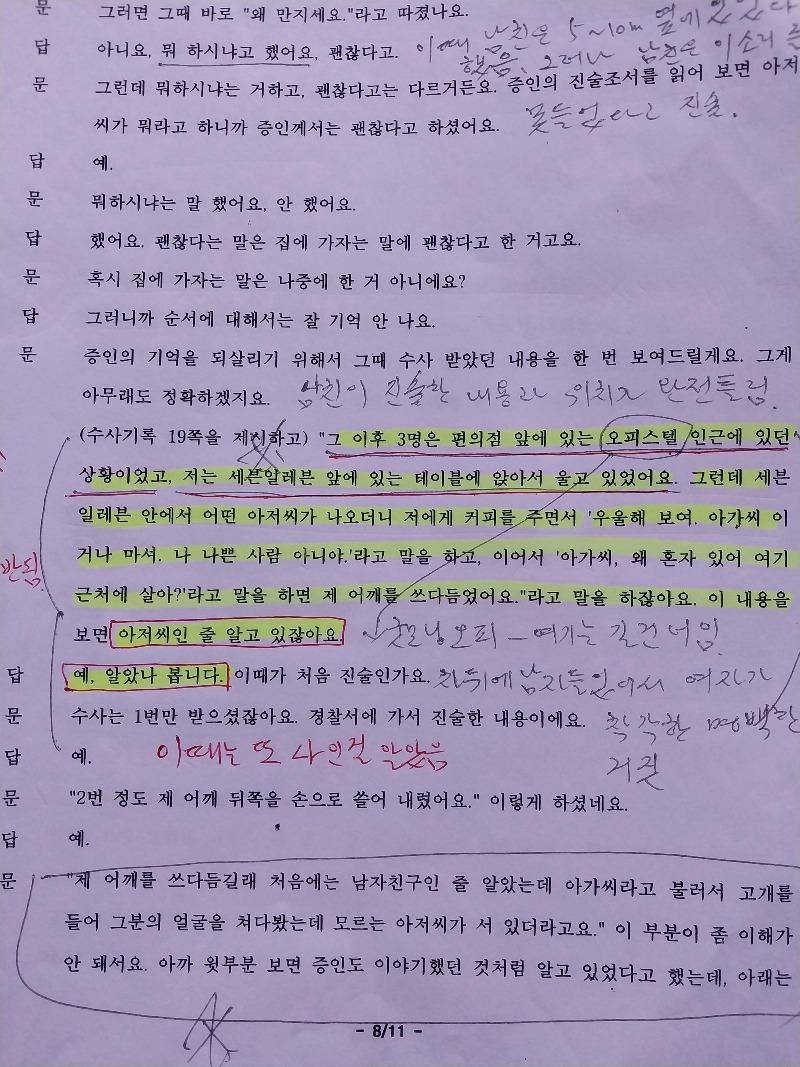 문 그러면 그때 바로 "왜 만지세요."라고 따졌나요.
답 아니요, 뭐 하시냐고 했어요, 괜찮다고.
이때 남친은 5~10m 옆에 있었다
했음. 그러나 남친은 이 소리를
문 그런데 뭐하시냐는 거하고, 괜찮다고는 다르거든요. 증인의 진술조서를 읽어 보면 아저
씨가 뭐라고 하니까 증인께서는 괜찮다고 하셨어요. 못들었다고 진술.
답 예.
문 뭐하시냐는 말 했어요, 안 했어요.
답 했어요. 괜찮다는 말은 집에 가자는 말에 괜찮다고 한 거고요.
문 혹시 집에 가자는 말은 나중에 한 거 아니에요?
답 그러니까 순서에 대해서는 잘 기억 안 나요.
문 증인의 기억을 되살리기 위해서 그때 수사 받았던 내용을 한 번 보여드릴게요. 그게
아무래도 정확하겠지요. 남친이 진술한 내용과 위치가 완전틀림.
(수사기록 19쪽을 제시하고) "그 이후 3명은 편의점 앞에 있는 오피스텔 인근에 있던
상황이었고, 저는 세븐일레븐 앞에 있는 테이블에 앉아서 울고 있었어요. 그런데 세븐
일레븐 안에서 어떤 아저씨가 나오더니 저에게 커피를 주면서 '우울해 보여. 아가씨 이
거나 마셔. 나 나쁜 사람 아니야.'라고 말을 하고, 이어서 '아가씨, 왜 혼자 있어 여기
근처에 살아?'라고 말을 하면 제 어깨를 쓰다듬었어요."라고 말을 하잖아요. 이 내용을
보면 아저씨인 줄 알고 있잖아요. 굿모닝오피 - 여기는 길건너임.
답 예, 알았나 봅니다. 이때가 처음 진술인가요. 뒤에 남자들있어서 여자가
문 수사는 1번만 받으셨잖아요. 경찰서에 가서 진술한 내용이에요. 착각한 명백한
답 예. 이때는 또 사인걸 알았음 거짓
문 "2번 정도 제 어깨 뒤쪽을 손으로 쓸어 내렸어요." 이렇게 하셨네요.
답 예.
문 "제 어깨를 쓰다듬길래 처음에는 남자친구인 줄 알았는데 아가씨라고 불러서 고개를
들어 그분의 얼굴을 쳐다봤는데 모르는 아저씨가 서 있더라고요." 이 부분이 좀 이해가
안 돼서요. 아까 윗부분 보면 증인도 이야기했던 것처럼 알고 있었다고 했는데, 아래는
- 8/11 -